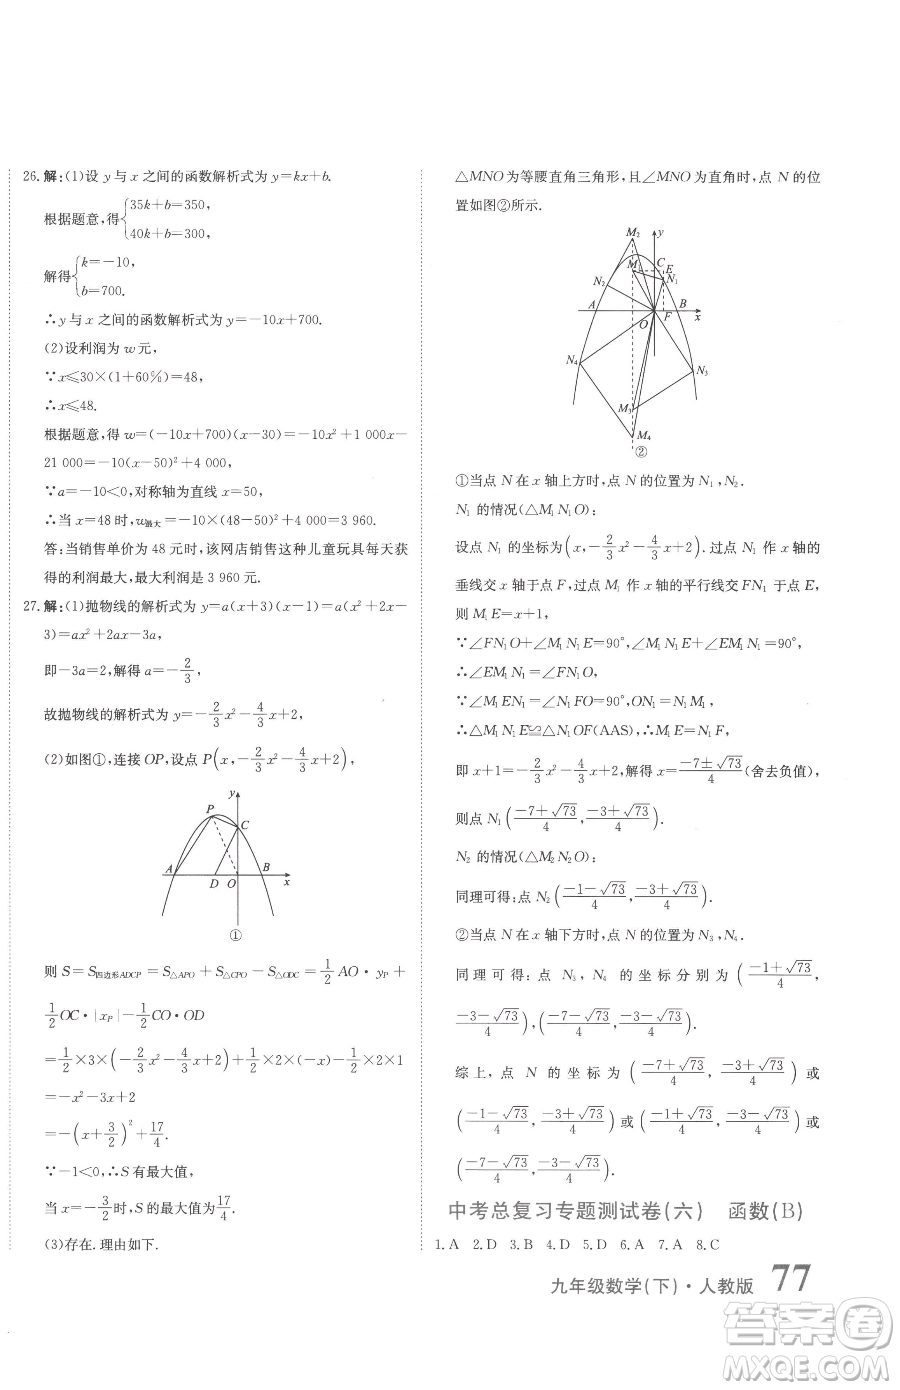 26. 解:(1)设 y 与 x 之间的函数解析式为 y=kx+b.
根据题意,得{35k+b=350,
40k+b=300,
解得{k=-10,
b=700.
∴y 与 x 之间的函数解析式为 y=-10x+700.
(2)设利润为 w 元,
∵x≤30×(1+60%)=48,
∴x≤48.
根据题意,得 w=(-10x+700)(x-30)=-10x²+1 000x-
21 000=-10(x-50)²+4 000,
∵a=-10<0,对称轴为直线 x=50,
∴当 x=48 时,w最大=-10×(48-50)²+4 000=3 960.
答:当销售单价为 48 元时,该网店销售这种儿童玩具每天获
得的利润最大,最大利润是 3 960 元.
27. 解:(1)抛物线的解析式为 y=a(x+3)(x-1)=a(x²+2x-
3)=ax²+2ax-3a,
即-3a=2,解得 a=-2/3,
故抛物线的解析式为 y=-2/3x²-4/3x+2,
(2)如图①,连接 OP,设点 P(x,-2/3x²-4/3x+2),
y
P
C
A
D
O
B
x
①
则 S=S四边形ADCP=S△APO+S△CPO-S△ODC=1/2AO·yP+
1/2OC·|xP|-1/2CO·OD
=1/2×3×(-2/3x²-4/3x+2)+1/2×2×(-x)-1/2×2×1
=-x²-3x+2
=-(x+3/2)²+17/4.
∵-1<0,∴S 有最大值,
∴当 x=-3/2时,S 的最大值为17/4.
(3)存在.理由如下.
△MNO为等腰直角三角形,且∠MNO为直角时,点 N的位
置如图②所示.
M₂
y
M₁
C
E
N₂
N₁
A
B
O
F
x
N₄
N₃
M₃
M₄
②
①当点 N在 x 轴上方时,点 N 的位置为 N₁,N₂.
N₁ 的情况(△M₁N₁O):
设点 N₁ 的坐标为(x,-2/3x²-4/3x+2).过点 N₁ 作 x 轴的
垂线交 x 轴于点 F,过点 M₁ 作 x 轴的平行线交 FN₁ 于点 E,
则 M₁E=x+1,
∵∠FN₁O+∠M₁N₁E=90°,∠M₁N₁E+∠EM₁N₁=90°,
∴∠EM₁N₁=∠FN₁O.
∵∠M₁EN₁=∠N₁FO=90°,ON₁=N₁M₁,
∴△M₁N₁E≌△N₁OF(AAS),∴M₁E=N₁F,
即 x+1=-2/3x²-4/3x+2,解得 x=(-7±√73)/4(舍去负值),
则点 N₁((-7+√73)/4,(-3+√73)/4).
N₂ 的情况(△M₂N₂O):
同理可得:点 N₂((-1-√73)/4,(-3+√73)/4).
②当点 N 在 x 轴下方时,点 N 的位置为 N₃,N₄.
同理可得:点 N₃,N₄ 的坐标分别为((-1+√73)/4,
(-3-√73)/4),((-7-√73)/4,(-3-√73)/4).
综上,点 N 的坐标为((-7+√73)/4,(-3+√73)/4)或
((-1-√73)/4,(-3+√73)/4)或((-1+√73)/4,(-3-√73)/4)或
((-7-√73)/4,(-3-√73)/4).
中考总复习专题测试卷(六) 函数(B)
1. A 2. D 3. B 4. D 5. D 6. A 7. A 8. C
九年级数学(下)·人教版 77
答案圈
MXQE.COM